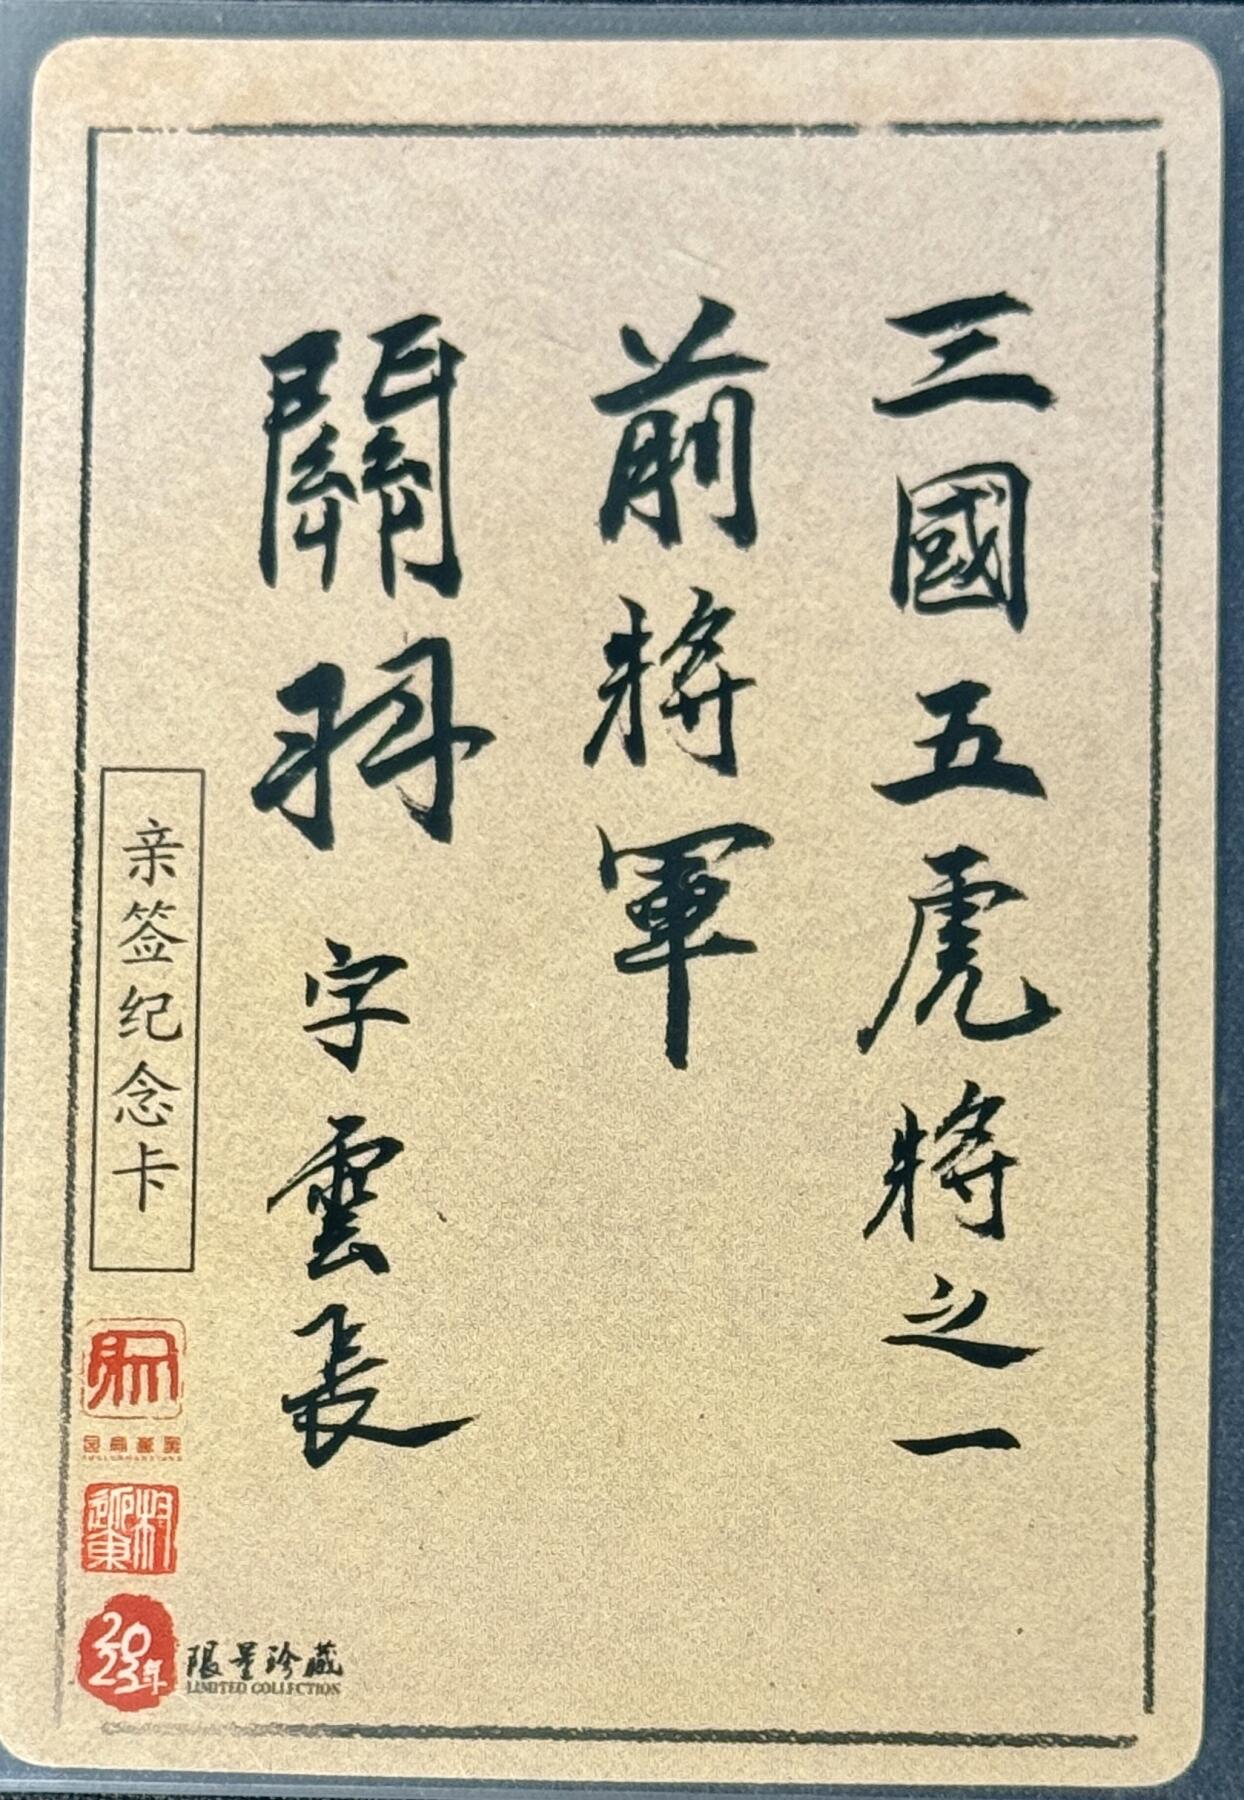 三國五虎將之一
前將軍
關羽 字雲長
亲签纪念卡
2023年
限量珍藏
LIMITED COLLECTION